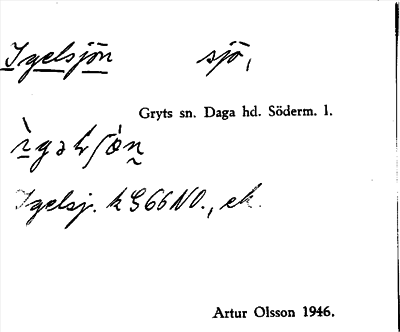 Igelsjön sjö,
Gryts sn. Daga hd. Söderm. l.
Igelsj. k G66NO., ek.
Artur Olsson 1946.